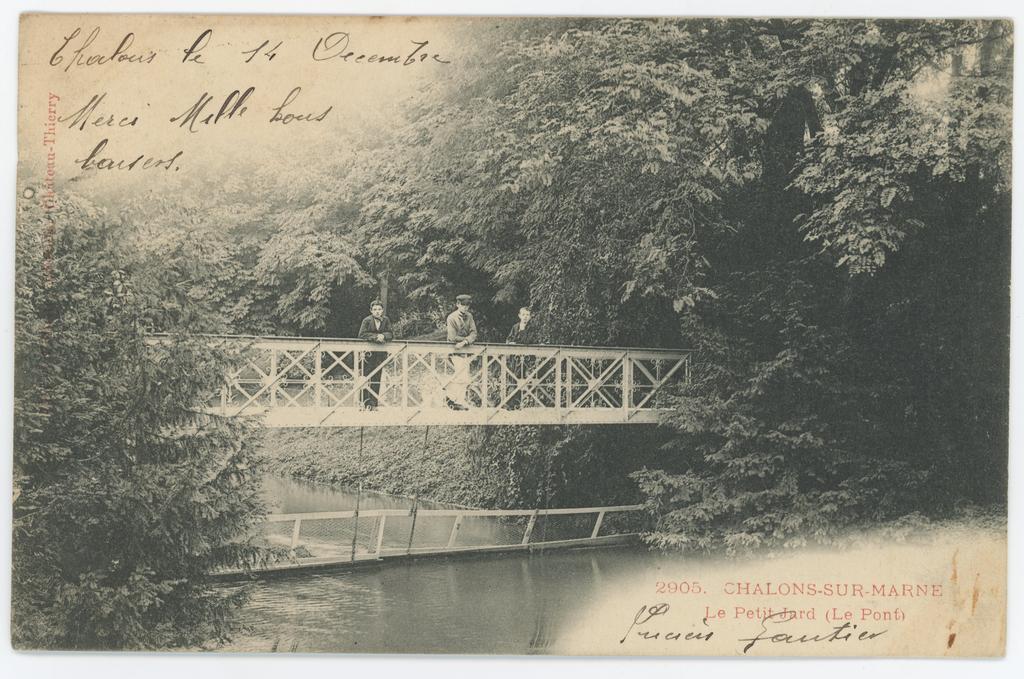 Chalons le 14 Decembre
Merci Mille bons
baisers.
Château-Thierry
2905. CHALONS-SUR-MARNE
Le Petit Jard (Le Pont)
Lucien Gautier